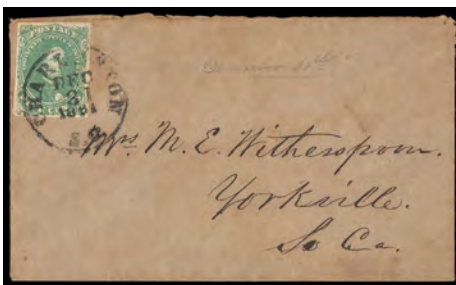 POSTAGE
CHARLESTON
DEC
31
1861
Mrs. M. E. Witherspoon.
Yorkville.
So Ca.